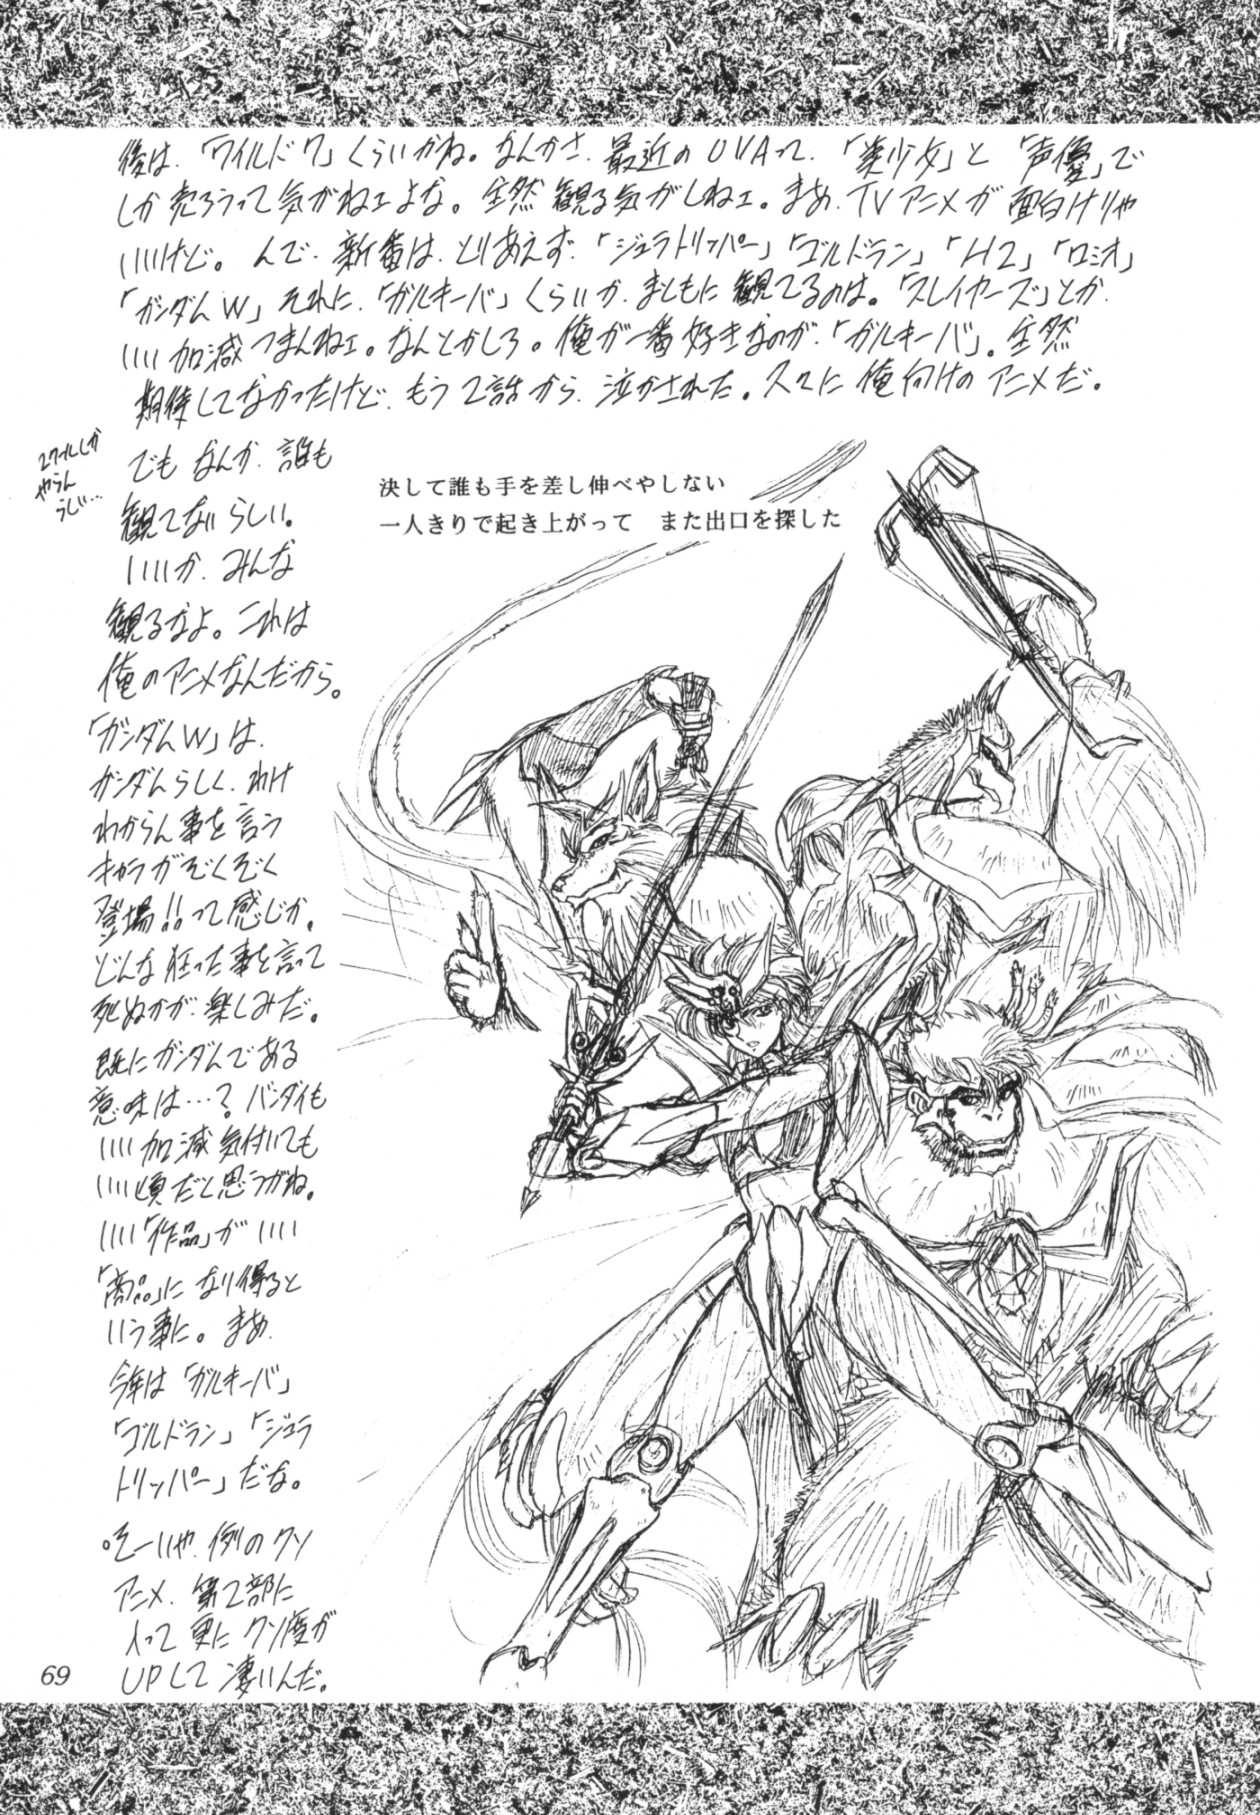 後は、「ワイルド7」くらいかね。なんかさ、最近のOVAって、「美少女」と「声優」で
しか売ろうって気がねェよな。全然観る気がしねェ。まあ、TVアニメが面白けりゃ
いいけど。んで、新番は、とりあえず、「ジュラトリッパー」「ゴルドラン」「H2」「ロミオ」
「ガンダムW」それに、「ガルキーバ」くらいか、まともに観てるのは。「スレイヤーズ」とか、
いい加減つまんねェ。なんとかしろ。俺が一番好きなのが、「ガルキーバ」。全然
期待してなかったけど、もう2話から、泣かされた。久々に俺向けのアニメだ。
でもなんか、誰も
観てないらしい。
いいか、みんな
観るなよ。これは
俺のアニメなんだから。
「ガンダムW」は、
ガンダムらしく、わけ
わからん事を言う
キャラがぞくぞく
登場!!って感じか。
どんな狂った事を言って
死ぬかが、楽しみだ。
既にガンダムである
意味は…?バンダイも
いい加減気付いても
いい頃だと思うがね。
いい「作品」がいい
「商品」になり得ると
いう事に。まあ、
今年は「ガルキーバ」
「ゴルドラン」「ジュラ
トリッパー」だな。
。そーいや、例のクソ
アニメ、第2部に
入って更にクソ度が
UPして凄いんだ。
2クールしか
やらん
決して誰も手を差し伸べやしない
一人きりで起き上がって　また出口を探した
69